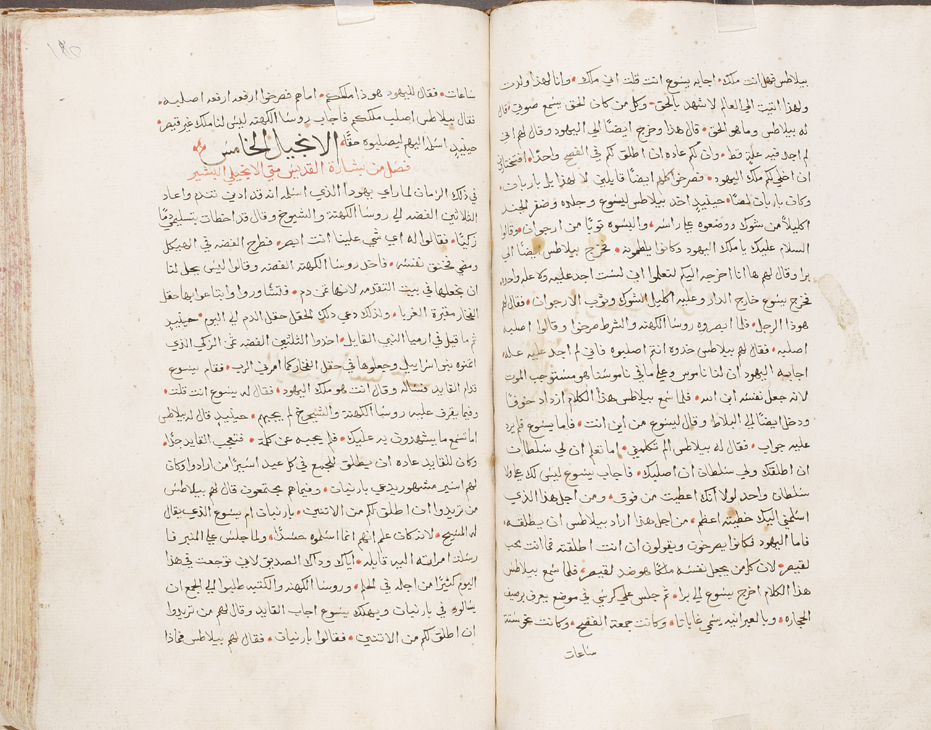 بيلاطس فهل انت ملك • اجابه يسوع انت قلت اني ملك • وانا لهذا ولدت
ولهذا اتيت الي العالم لاشهد بالحق • وكل من كان للحق يسمع صوتي • قال
له بيلاطس وما هو الحق • قال هذا وخرج ايضًا الي اليهود وقال لهم اني
لم اجد فيه علة قط • وان لكم عاده ان اطلق لكم في الفصح واحدًا • افتحبون
ان اخلي لكم ملك اليهود • فصرخوا كلهم ايضًا قايلين لا لهذا بل باربان •
وكان باربان لصًا • حينيذٍ اخد بيلاطس ليسوع وجلده وضفر الجند
اكليلاً من شوك ووضعوه علي راسه • والبسوه ثوبًا من ارجوان • وقالوا
السلام عليك يا ملك اليهود وكانوا يلطمونه • فخرج بيلاطس ايضًا الي
برا وقال لهم ها انا اخرجه اليكم لتعلموا اني لست اجد عليه ولا علة واحده
فخرج يسوع خارج الدار وعليه اكليل الشوك وثوب الارجوان • فقال لهم
هوذا الرجل • فلما ابصروه روسا الكهنه والشرط صرخوا وقالوا اصلبه
اصلبه • فقال لهم بيلاطس خدوه انتم اصلبوه فاني لم اجد عليه عله
اجابه اليهود ان لنا ناموس وعلي ما في ناموسنا هو مستوجب الموت
لانه جعل نفسه ابن الله • فلما سمع بيلاطس هذا الكلام ازداد خوفًا
ودخل ايضًا الي البلاط وقال ليسوع من اين انت • فاما يسوع فلم يرد
عليه جواب • فقال له بيلاطس الم تكلمني • اما تعلم ان لي سلطان
ان اطلقك ولي سلطان ان اصلبك • فاجاب يسوع ليس لك علي ولا
سلطان واحد لولا انك اعطيت من فوق • ومن اجل هذا الذي
اسلمني اليك خطيته اعظم • من اجل هذا اراد بيلاطس ان يطلقه •
فاما اليهود فكانوا يصرخون ويقولون ان انت اطلقته فما انت محب
لقيصر • لان كل من يجعل نفسه ملكًا هو ضد لقيصر • فلما سمع بيلاطس
هذا الكلام اخرج يسوع الي برا • ثم جلس علي كرسي في موضع يعرف برصيف
الحجاره • وبالعبرانيه يسمي غاباتا • وكانت جمعة الفصح • وكانت نحو ستة
ساعات
ساعات • فقال لليهود هوذا ملككم • اما هم فصرخوا ارفعه ارفعه اصلبه
فقال بيلاطس اصلب ملككم فاجاب روسا الكهنه ليس لنا ملك غير قيصر •
حينيذٍ اسلمه اليهم ليصلبوه حقًا • الانجيل الخامس
فصل من بشارة القديس متي الانجيلي البشير
في ذلك الزمان لما راي يهودا الذي اسلمه انه قد ادين تندم واعاد
الثلاثين الفضه الي روسا الكهنة والشيوخ وقال قد اخطات بتسليمي دمًا
زكيًا • فقالوا له اي شي علينا انت ابصر • فطرح الفضه في الهيكل
ومضي فخنق نفسه • فاخد روسا الكهنه الفضه وقالوا ليس يحل لنا
ان نجعلها في بيت التقدمه لانها ثمن دم • فتشاوروا وابتاعوا بها حقل
الفخار مقبرة الغربا • ولذلك دعي ذلك الحقل حقل الدم الي اليوم • حينيذٍ
تم ما قيل في ارميا النبي القايل • اخدوا الثلثين الفضه ثمن الزكي الذي
اثمنوه بنو اسراييل وجعلوها في حقل الفخار كما امرني الرب • فقام يسوع
قدام القايد فساله وقال انت هو ملك اليهود • فقال له يسوع انت قلت •
وفيما يقرف عليه روسا الكهنة والشيوخ لم يجبهم • حينيذٍ قال له بيلاطس
اما تسمع ما يشهدون به عليك • فلم يجيبه عن كلمة • فتعجب القايد جدًا •
وكان للقايد عاده ان يطلق للجمع في كل عيد اسيرًا من ارادوا وكان
لهم اسير مشهور يدعي بارنبان • وفيما هم مجتمعون قال لهم بيلاطس
من تريدوا ان اطلق لكم من الاتنين • بارنبان ام يسوع الذي يقال
له المسيح • لانه كان علم انهم انما اسلموه حسدًا • ولما جلس علي المنبر
رسلت امراته اليه قايله • اياك وذاك الصديق لاني توجعت في هذا
اليوم كثيرًا من اجله في الحلم • وروسا الكهنه والكتبه طلبوا الي الجمع ان
يسالوه في بارنبان ويهلك يسوع اجاب القايد وقال لهم من تريدوا
ان اطلق لكم من الاتنين • فقالوا بارنبان • فقال لهم بيلاطس فماذا